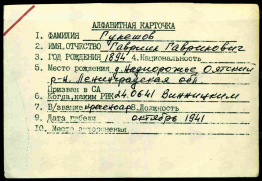 АЛФАВИТНАЯ КАРТОЧКА
1. ФАМИЛИЯ Гукешов
2. ИМЯ, ОТЧЕСТВО Гаврил Гаврилович
3. ГОД РОЖДЕНИЯ 1894 4. Национальность
5. Место рождения д. Надпорожье, Оятский
р-н Ленинградская обл.
Призван в СА
6. Когда, каким РВК 24.0641 Винницким
7. В/звание красноарм 8. Должность
9. Дата гибели октябрь 1941
10. Место захоронения